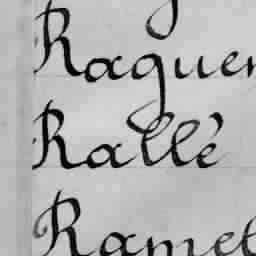 Raguen
Rallé
Ramel